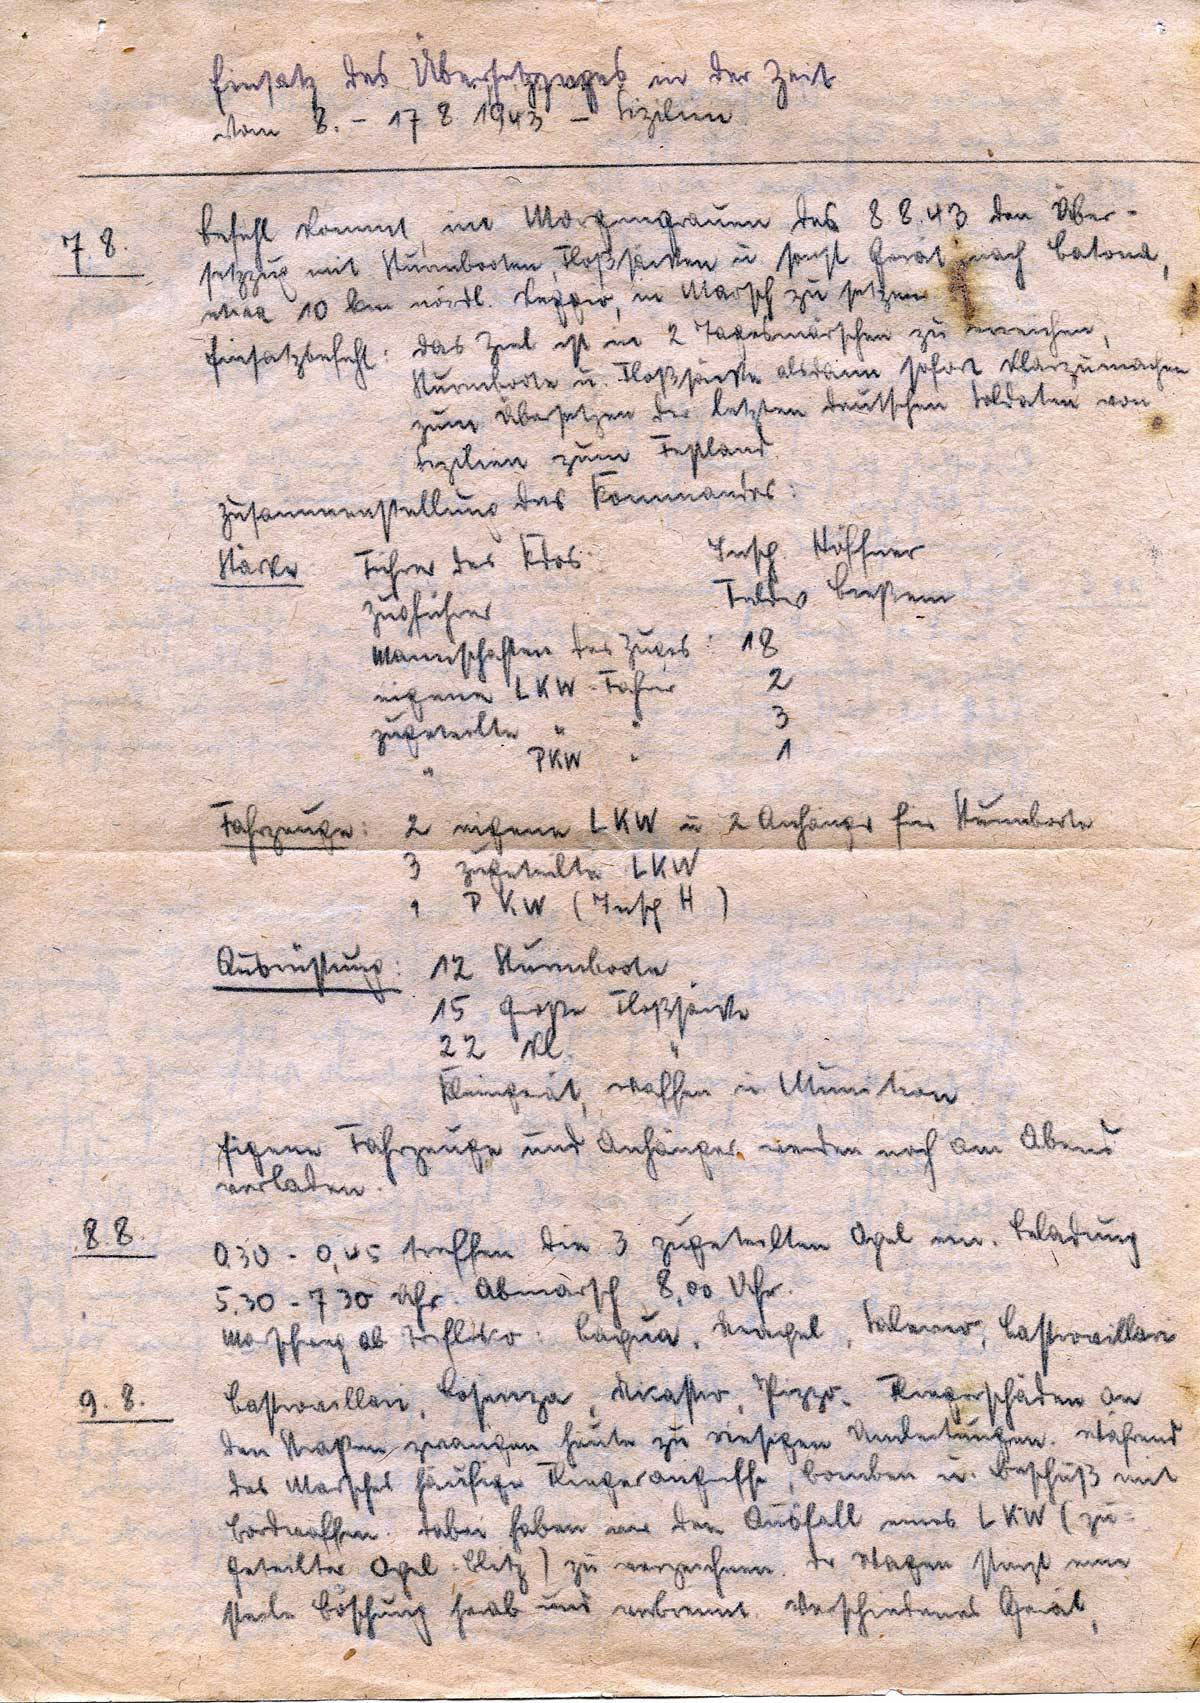 Einsatz des Übersetzzuges in der Zeit
vom 8. - 17 8 1943 - Sizilien
7.8.
Befehl kommt, im Morgengrauen des 8 8.43 den Über-
setzzug mit Sturmbooten, Floßsäcken u sonst Gerät nach Catona,
etwa 10 km nördl. Reggio, in Marsch zu setzen
Einsatzbefehl: das Ziel ist in 2 Tagesmärschen zu erreichen,
Sturmboote u. Floßsäcke alsdann sofort klarzumachen
zum Übersetzen der letzten deutschen Soldaten von
Sizilien zum Festland.
Zusammenstellung des Kommandos:
Stärke Führer des Kdos: Insp. Höffner
Zugführer Feldw Breßem
Mannschaften des Zuges: 18
eigene LKW-Fahrer 2
zugeteilte " " 3
" PKW " 1
Fahrzeuge: 2 eigene LKW u 2 Anhänger für Sturmboote
3 zugeteilte LKW
1 PKW (Insp H)
Ausrüstung: 12 Sturmboote
15 große Floßsäcke
22 kl. "
Kleingerät, Waffen u Munition
Eigene Fahrzeuge und Anhänger werden noch am Abend
verladen.
8.8.
0,30 - 0,45 treffen die 3 zugeteilten Opel ein. Beladung
5,30 - 7 30 Uhr. Abmarsch 8,00 Uhr.
Marschweg ab : Capua, Neapel, Salerno, Castrovillari
9.8.
Castrovillari, Cosenza, Nicastro, Pizzo. Fliegerschäden an
den Straßen zwangen heute zu riesigen Umleitungen. Während
des Marsches häufige Fliegerangriffe, Bomben u. Beschuß mit
Bordwaffen. Dabei haben wir den Ausfall eines LKW (zu-
geteilter Opel-Blitz) zu verzeichnen. Der Wagen stürzt eine
steile Böschung herab und verbrennt. Verschiedenes Gerät,